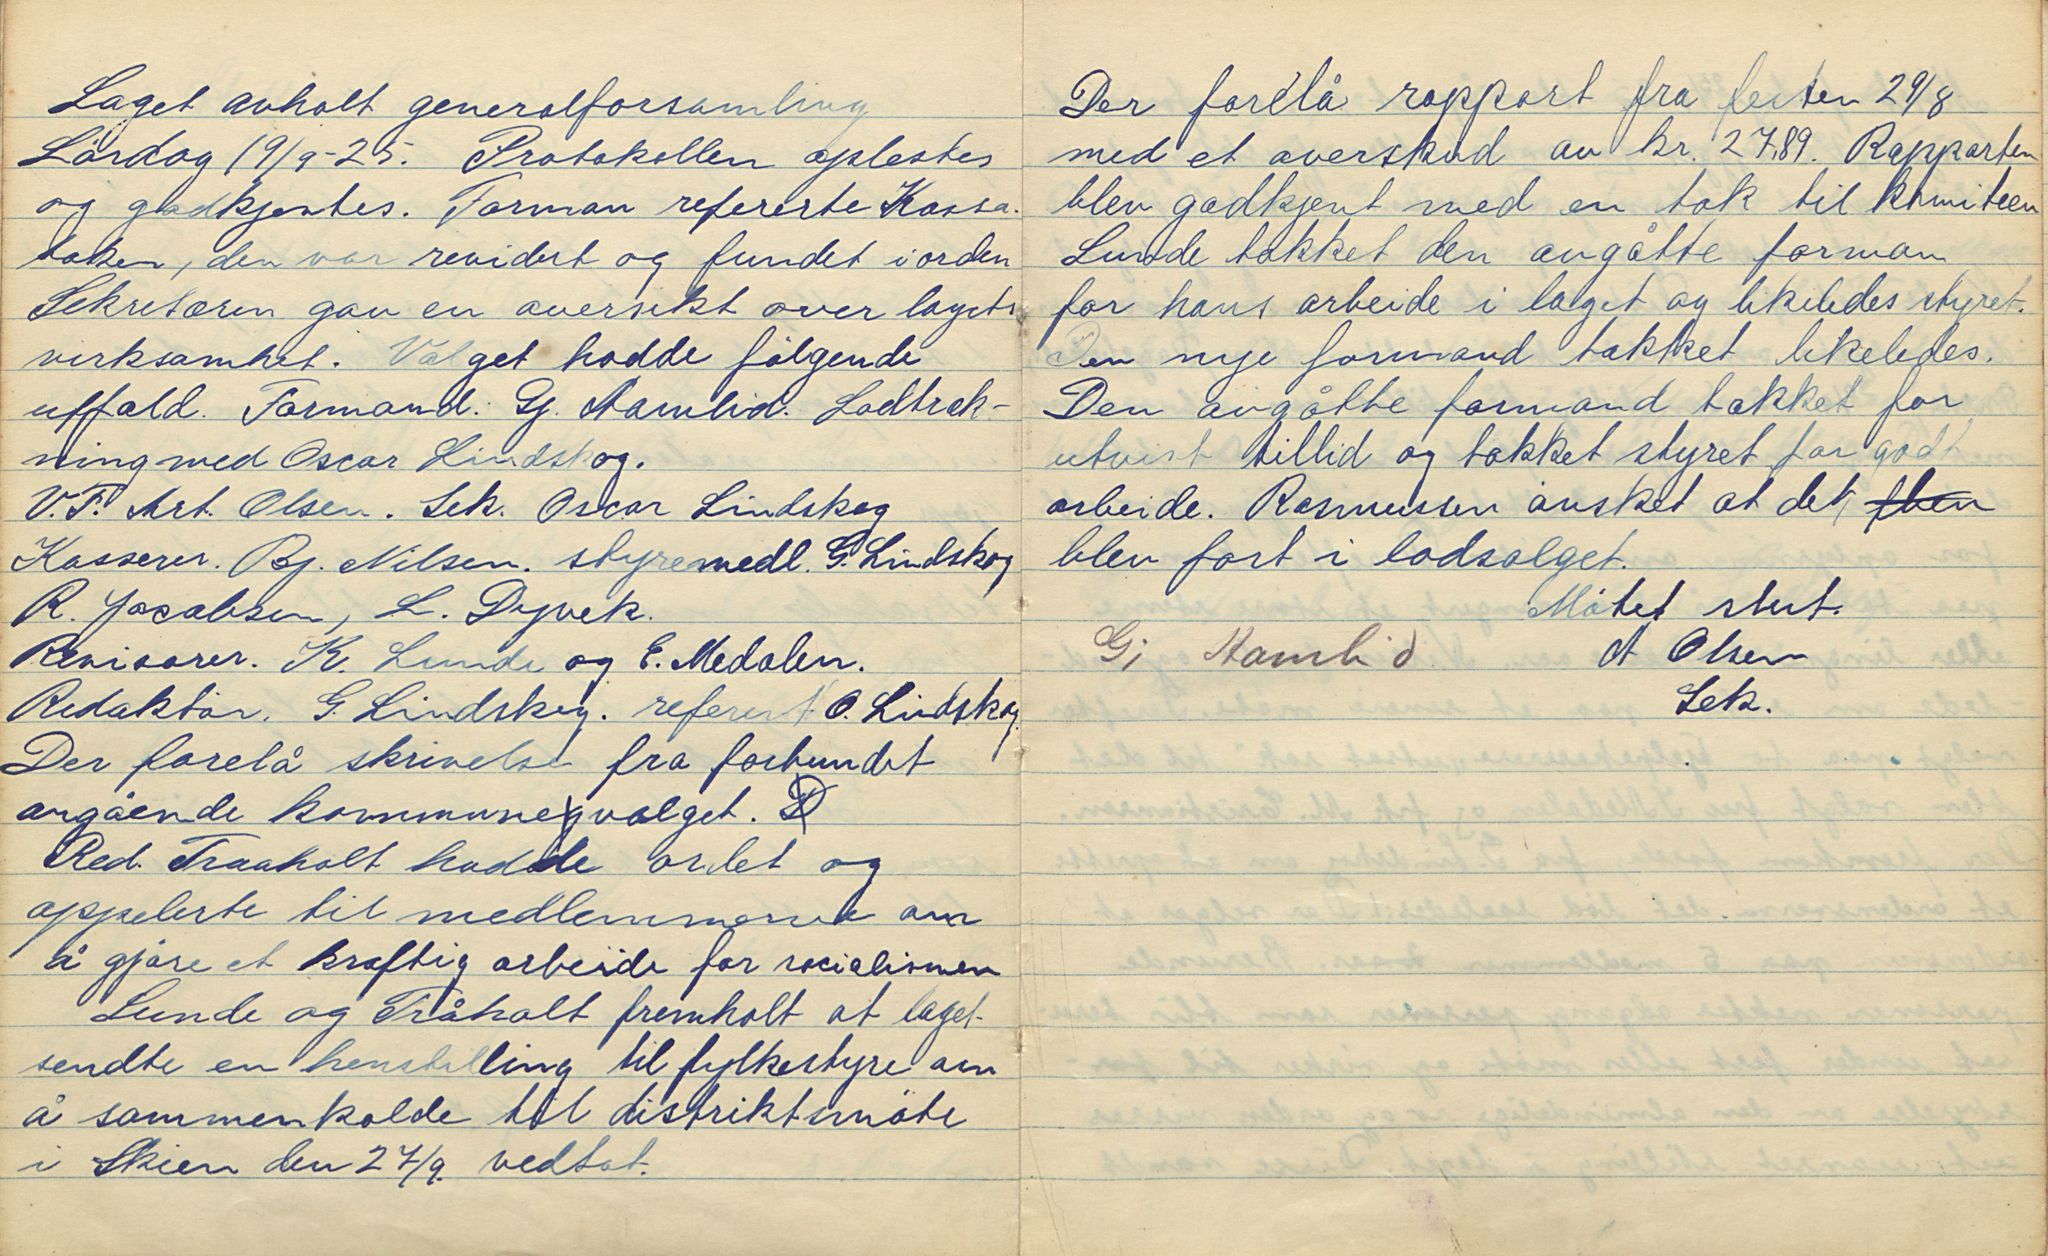 Laget avholt generalforsamling
Lördag 19/9-25. Protokollen oplestes
og godkjentes. Forman refererte Kassa-
boken, den var revidert og fundet i orden
Sekretæren gav en oversikt over lagets
virksomhet. Valget hadde fölgende
uffald. Formand. Gj. Aamlid. Lodtrek-
ning med Oscar Lindskog.
V.F. Art. Olsen. Sek. Oscar Lindskog
Kasserer. Bj. Nilsen. styremedl. G. Lindskog
R. Jacobsen, L. Dyvek.
Revisorer. K. Lunde og E. Medalen.
Redaktör. G. Lindskog. referent O. Lindskog.
Der forelå skrivelse fra forbundet
angående kommunevalget. D
Red. Traaholt hadde ordet og
appelerte til medlemmerne om
å gjöre et kraftig arbeide for socialismen
Lunde og Tråholt fremholt at laget
sendte en henstilling til fylkestyre om
å sammenkalde til distriktsmöte
i Skien den 27/9. vedtat.
Der forelå rapport fra festen 29/8
med et overskud av kr. 27,89. Rapporten
blev godkjent med en tak til komiteen
Lunde takket den avgåtte forman
for hans arbeide i laget og likeledes styret.
Den nye formand takket likeledes.
Den avgåtte formand takket for
utvist tillid og takket styret for godt
arbeide. Rasmussen önsket at det blev
blev fort i lodsalget.
Mötet slut.
Gj Aamlid A Olsen
Sek.